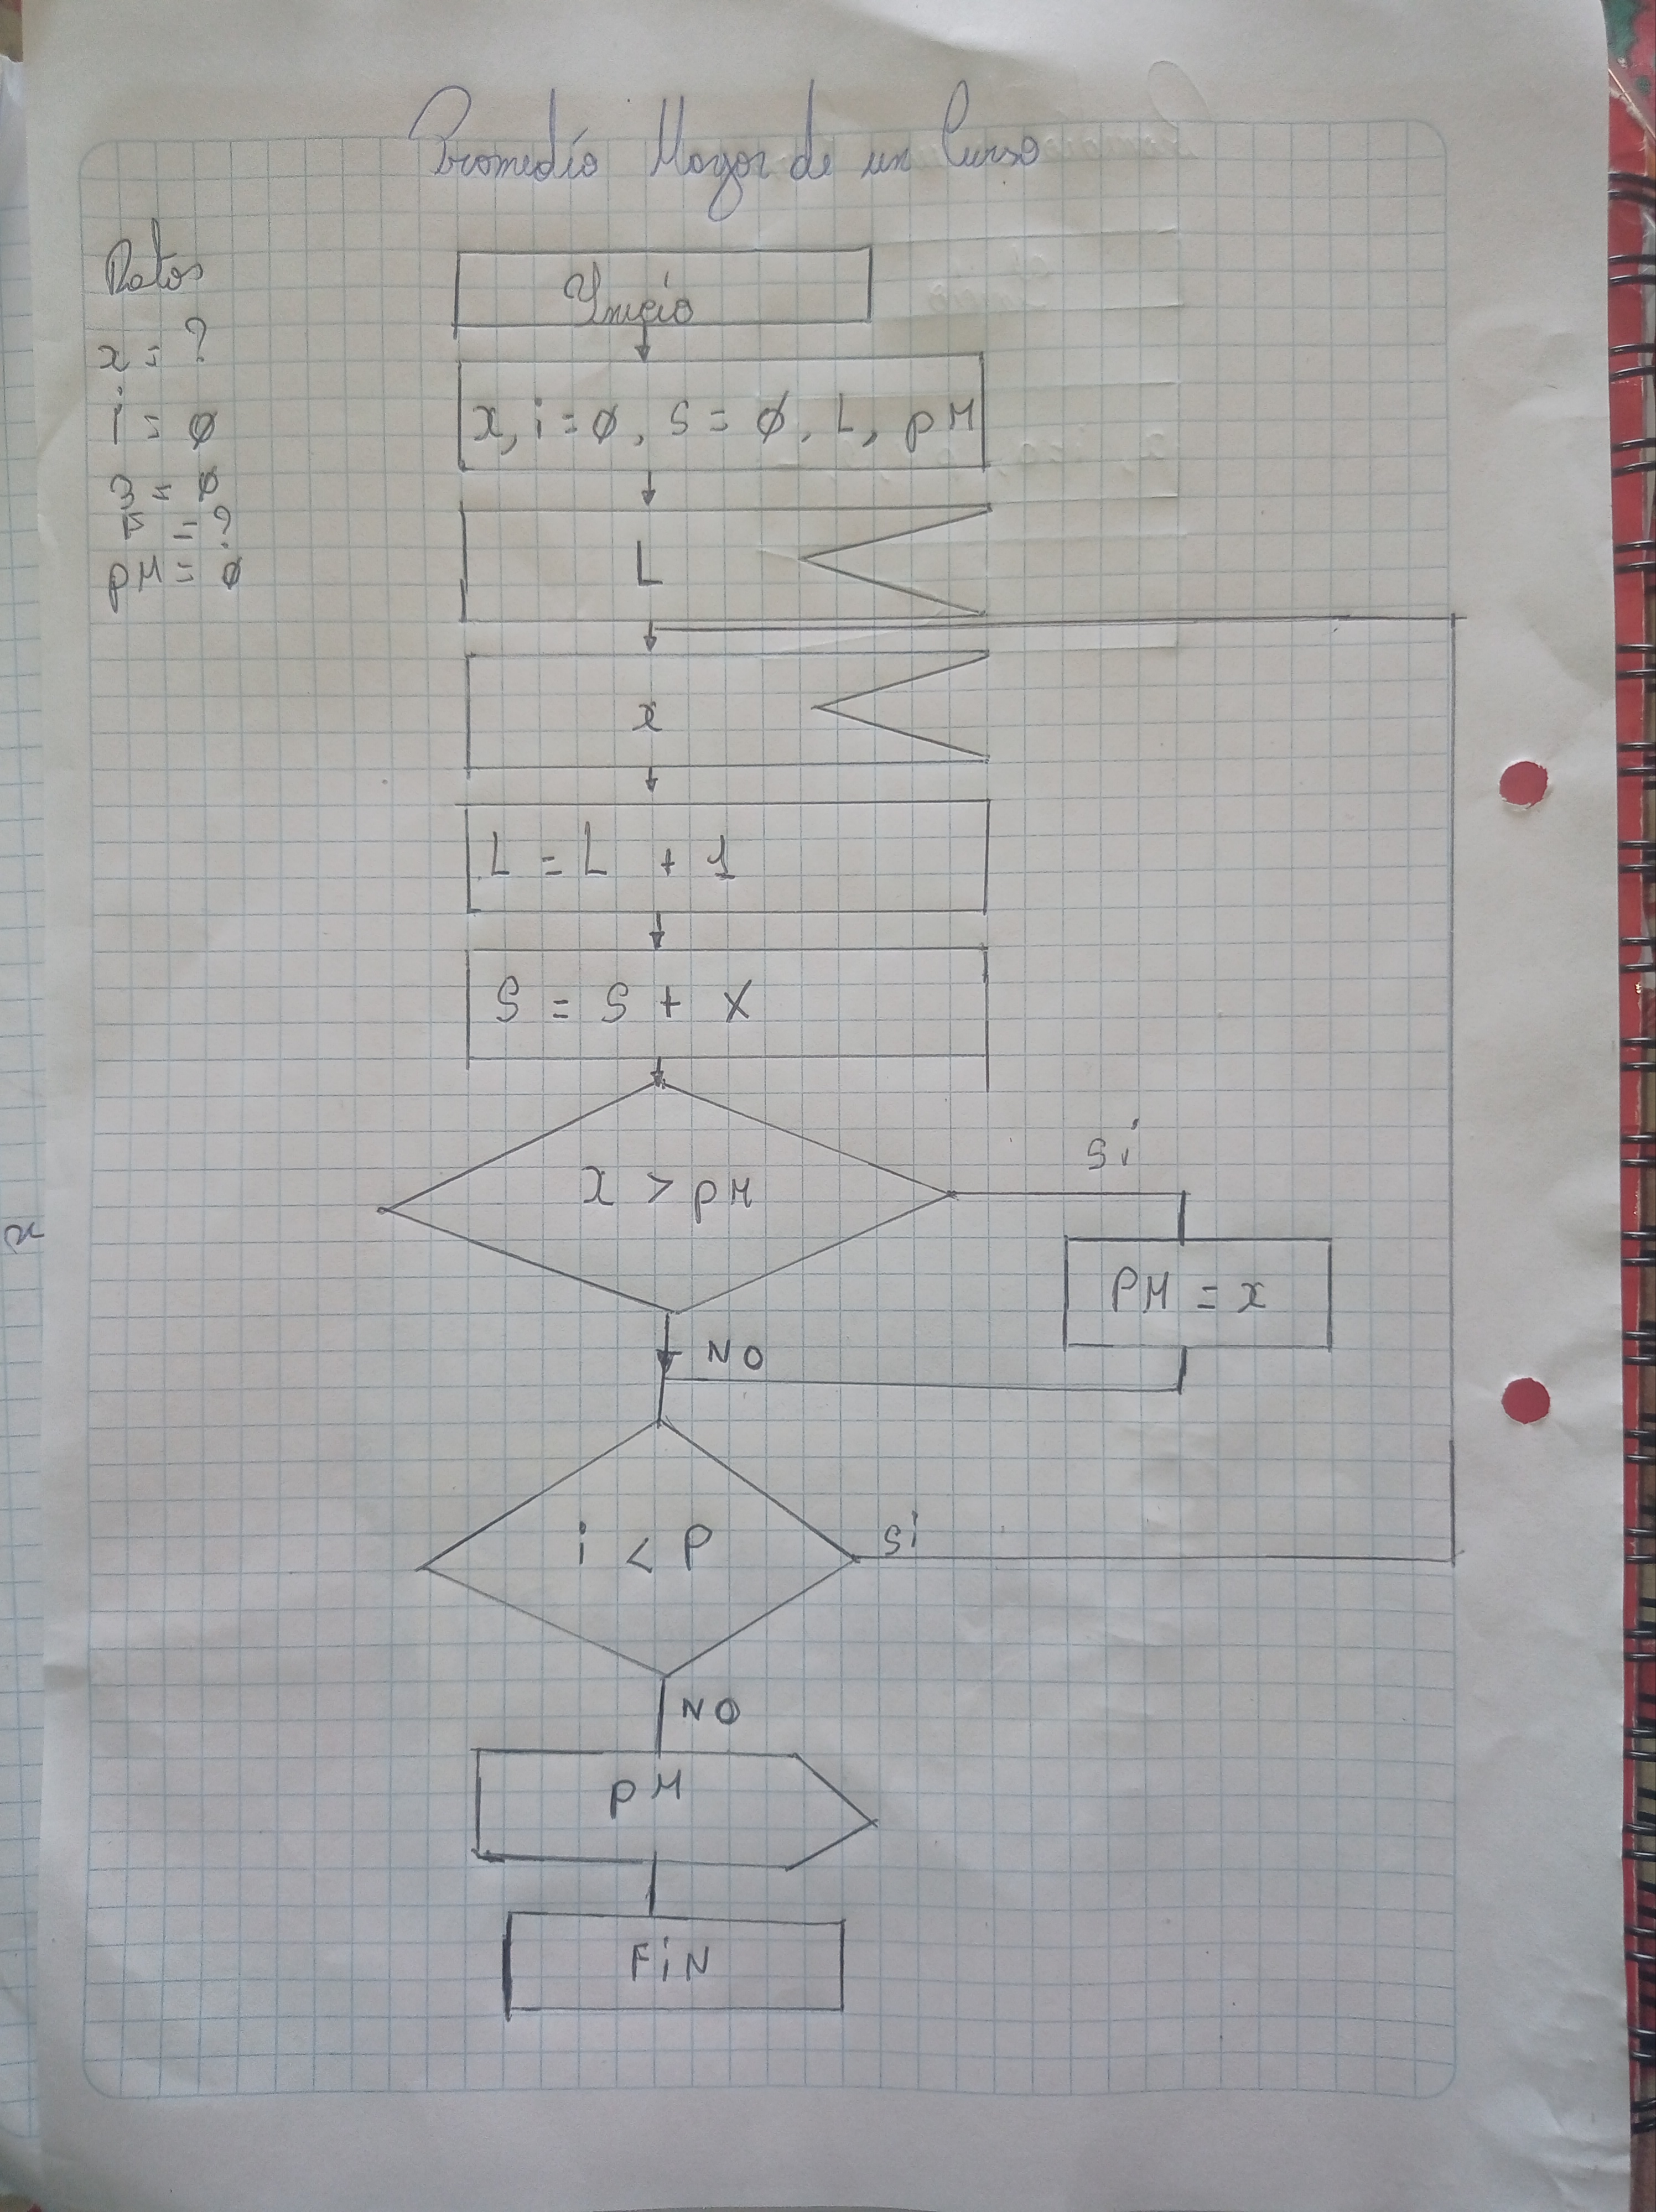 Promedio Mayor de un Curso
Datos
x = ?
i = ø
S = ø
= ?
pM = ø
Inicio
x, i = ø, S = ø, L, pM
L
x
L = L + 1
S = S + X
x > pM
si
PM = x
NO
i < P
si
NO
pM
FiN
x